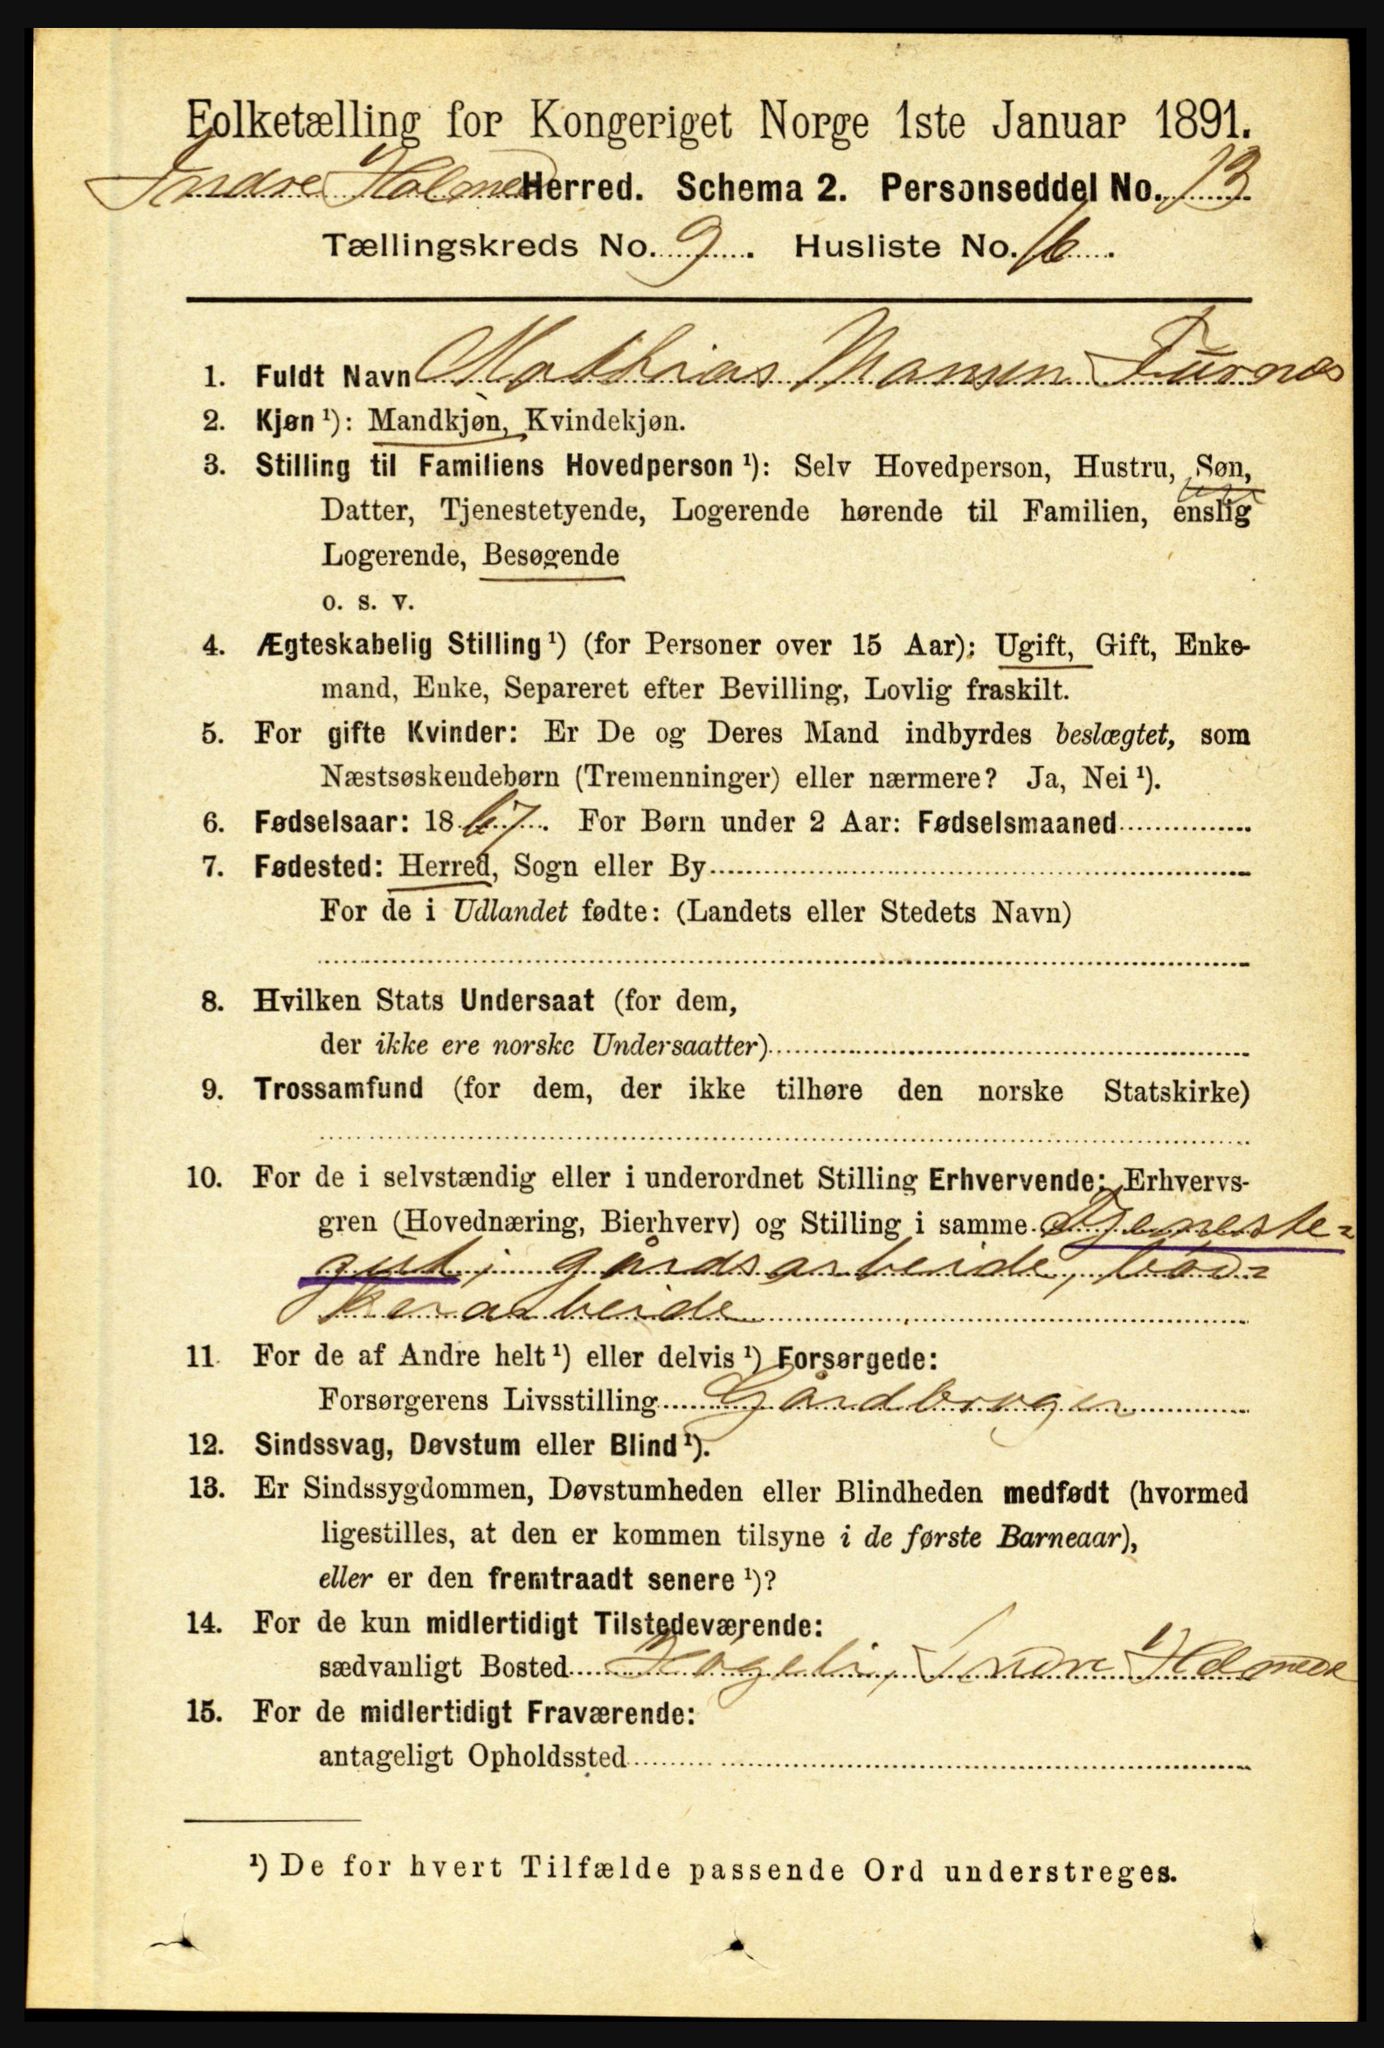 Folketælling for Kongeriget Norge 1ste Januar 1891.
Indre Holmed Herred. Schema 2. Personseddel No. 13
Tællingskreds No. 9. Husliste No. 16.
1. Fuldt Navn Mathias Hansen Furnæs
2. Kjøn ¹): Mandkjøn, Kvindekjøn.
3. Stilling til Familiens Hovedperson ¹): Selv Hovedperson, Hustru, Søn,
Datter, Tjenestetyende, Logerende hørende til Familien, enslig
Logerende, Besøgende
o. s. v.
4. Ægteskabelig Stilling ¹) (for Personer over 15 Aar): Ugift, Gift, Enke-
mand, Enke, Separeret efter Bevilling, Lovlig fraskilt.
5. For gifte Kvinder: Er De og Deres Mand indbyrdes beslægtet, som
Næstsøskendebørn (Tremenninger) eller nærmere? Ja, Nei ¹).
6. Fødselsaar: 1867. For Børn under 2 Aar: Fødselsmaaned
7. Fødested: Herred, Sogn eller By
For de i Udlandet fødte: (Landets eller Stedets Navn)
8. Hvilken Stats Undersaat (for dem,
der ikke ere norske Undersaatter)
9. Trossamfund (for dem, der ikke tilhøre den norske Statskirke)
10. For de i selvstændig eller i underordnet Stilling Erhvervende: Erhvervs-
gren (Hovednæring, Bierhverv) og Stilling i samme Tjeneste=
gut, gårdsarbeide, bød=
kerarbeide
11 For de af Andre helt ¹) eller delvis ¹) Forsørgede:
Forsørgerens Livsstilling Gårdbruger
12. Sindssvag, Døvstum eller Blind ¹).
13. Er Sindssygdommen, Døvstumheden eller Blindheden medfødt (hvormed
ligestilles, at den er kommen tilsyne i de første Barneaar),
eller er den fremtraadt senere ¹)?
14. For de kun midlertidigt Tilstedeværende:
sædvanligt Bosted Hageli, Indre Holmed
15. For de midlertidigt Fraværende:
antageligt Opholdssted
¹) De for hvert Tilfælde passende Ord understreges.